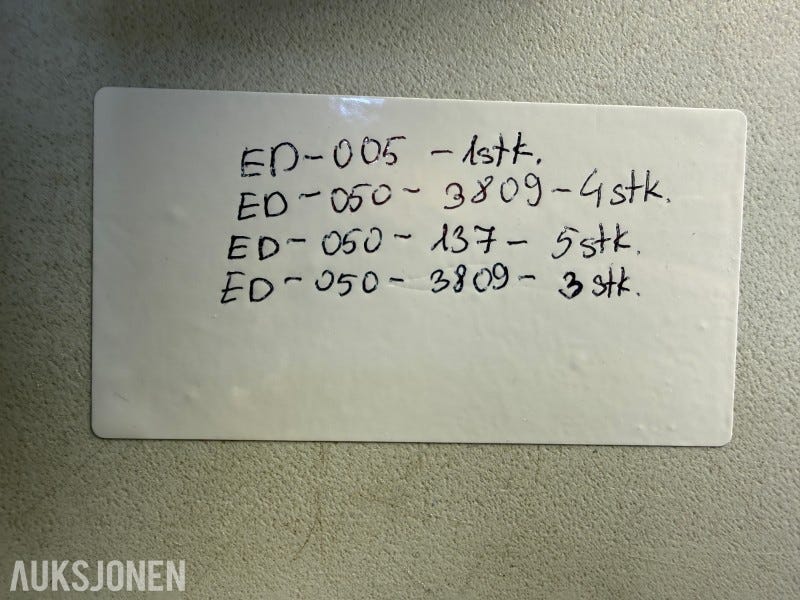 ED-005 - 1stk.
ED-050-3809-4stk.
ED-050-137-5stk.
ED-050-3809-3stk.
AUKSJONEN